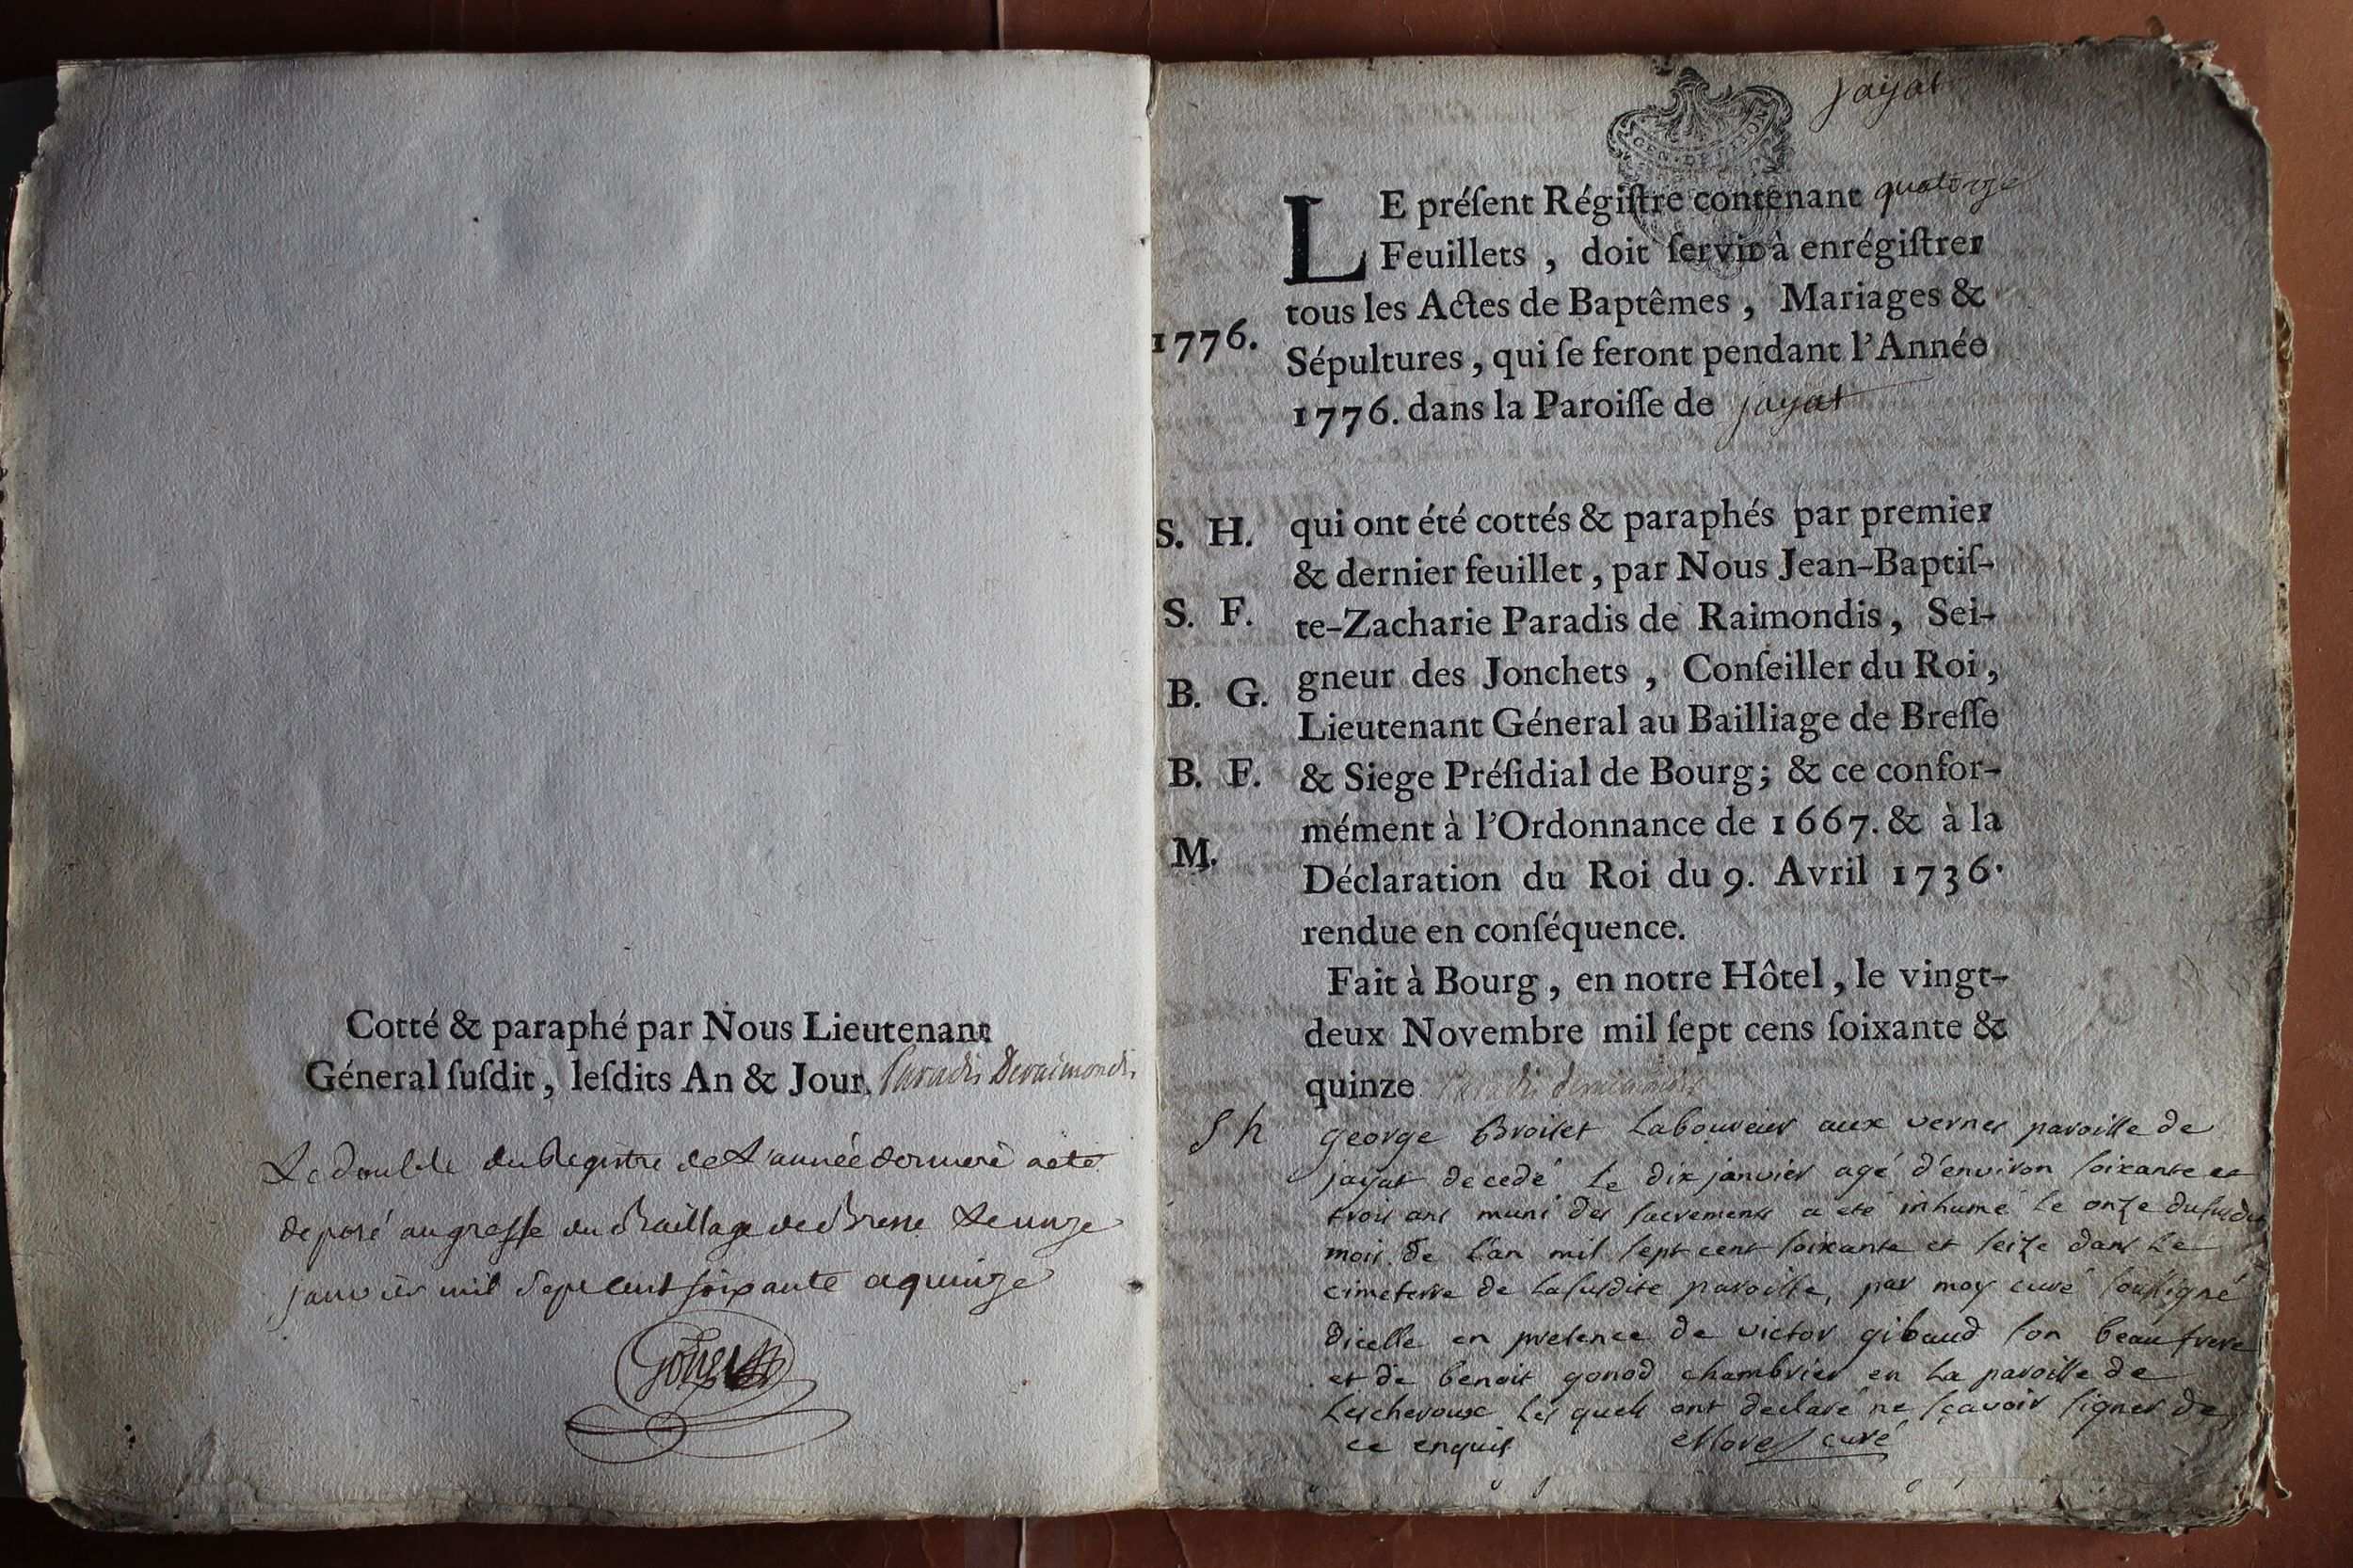 Cotté & paraphé par Nous Lieutenant
Géneral ſuſdit, leſdits An & Jour. Paradis Deraimondis
Le double du Registre de L'année derniere a eté
deposé au greffe du Bailliage de Bresse Le unze
janvier mil Sept cent soixante
jayat
GEN. DE DIJON
LE préſent Régiſtre contenant quatorze
Feuillets, doit ſervir à enrégiſtrer
tous les Actes de Baptêmes, Mariages &
1776.
Sépultures, qui ſe feront pendant l'Année
1776. dans la Paroiſſe de jayat
S. H.
qui ont été cottés & paraphés par premier
& dernier feuillet, par Nous Jean-Baptiſ-
S. F.
te-Zacharie Paradis de Raimondis, Sei-
gneur des Jonchets, Conſeiller du Roi,
B. G.
Lieutenant Géneral au Bailliage de Breſſe
B. F.
& Siege Préſidial de Bourg; & ce confor-
mément à l'Ordonnance de 1667. & à la
M.
Déclaration du Roi du 9. Avril 1736.
rendue en conſéquence.
Fait à Bourg, en notre Hôtel, le vingt-
deux Novembre mil ſept cens ſoixante &
quinze Paradis deraimondis
S h
george Broiset Laboureur aux vernes paroisse de
jayat decedé Le dix janvier agé d'environ soixante et
trois ans muni des sacrements a eté inhumé le onze dususdit
mois de l'an mil sept cent soixante et seize dans Le
cimeterre de Lasusdite paroisse, par moy curé soussigné
dicelle en presence de victor gibaud son beaufrere
et de benoit gonod chambrier en La paroisse de
Lescheroux Les quels ont declaré ne sçavoir signer de
ce enquis curé